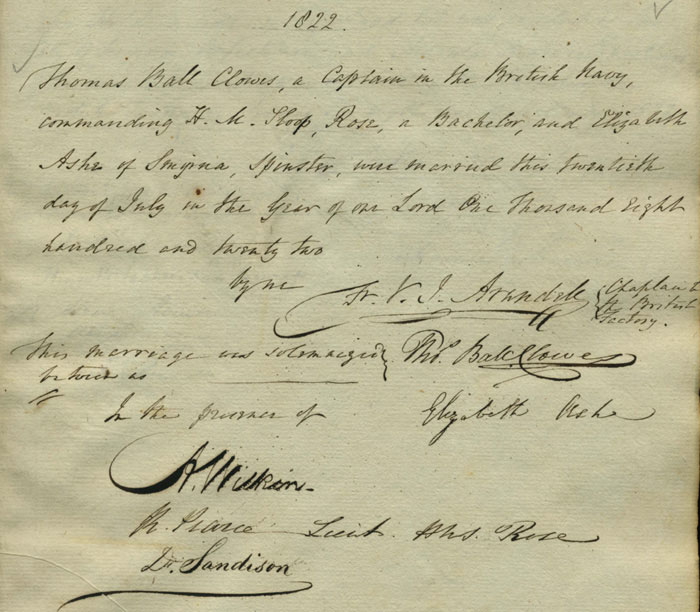 1822.
Thomas Ball Clowes, a Captain in the British Navy,
commanding H. M. Sloop, Rose, a Bachelor, and Elizabeth
Ashe of Smyrna, Spinster, were married this twentieth
day of July in the Year of our Lord One Thousand Eight
hundred and twenty two
by me
Fr. V. J. Arundell { Chaplain to
the British
Factory.
This marriage was solemnized
between us } Thos. Ball Clowes
In the presence of Elizabeth Ashe
A. Wilkin
R. Pearce Lieut. HMS. Rose
D. Sandison